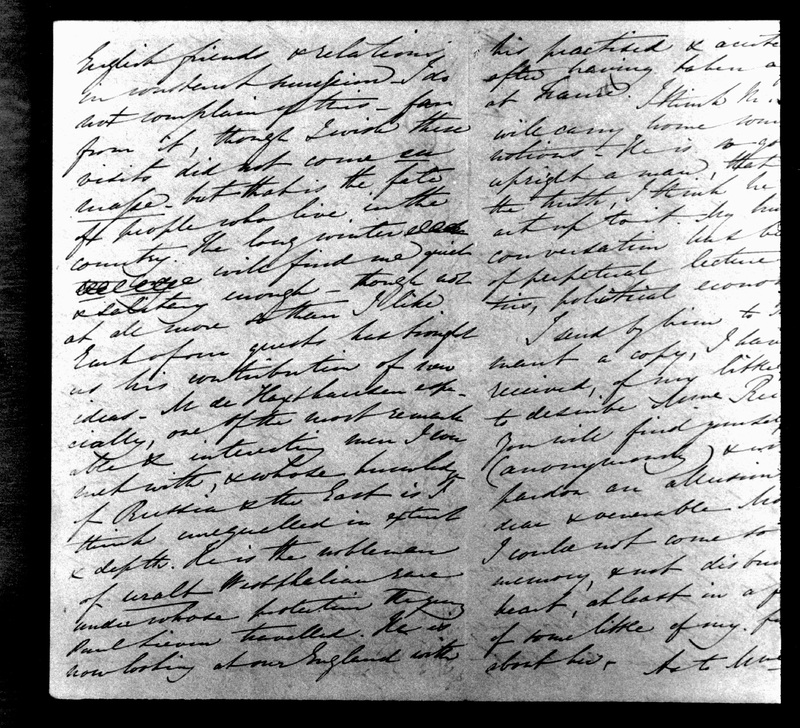 English friends & relations
in constant succession I do
not complain of this – far
from it, though I wish these
visits did not come en
masse – but that is the fate
of people who live in the
country. The long winter
will find me quiet
& solitary enough – though not
at all more so than I like
Each of our guests has brought
us his contribution of new
ideas – M de Haxthausen espe-
cially, one of the most remark
able & interesting men I ever
met with, & whose knowledge
of Russia & the East is I
think unequalled in extent
& depth. He is the nobleman
of uralt Westphalian race
under whose protection the young
Paul Lieven travelled. He is
now looking at our England with
his practised & acute
after having taken a
at France. I think M. 
will carry home some
notions – He is so go
upright a man, that
the truth, I think he
act up to it. My hus
conversation has be
of perpetual lecture
tics, political econom
I send by him to
want a copy, I have
received, of my little
to describe Mme Rec
You will find yourself
(anonymously) & wi
pardon an allusion
dear & venerable Mo
I could not come to
memory, & not disbur
heart, at least in a f
of some little of my fe
about her. As to Mme